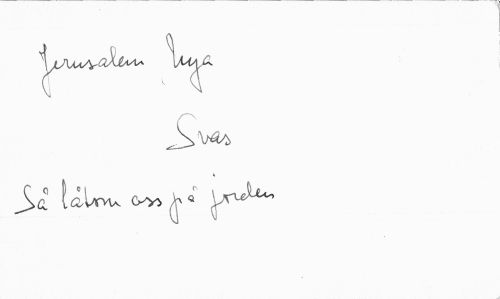 Jerusalem Nya
Svas
Så låtom oss på jorden